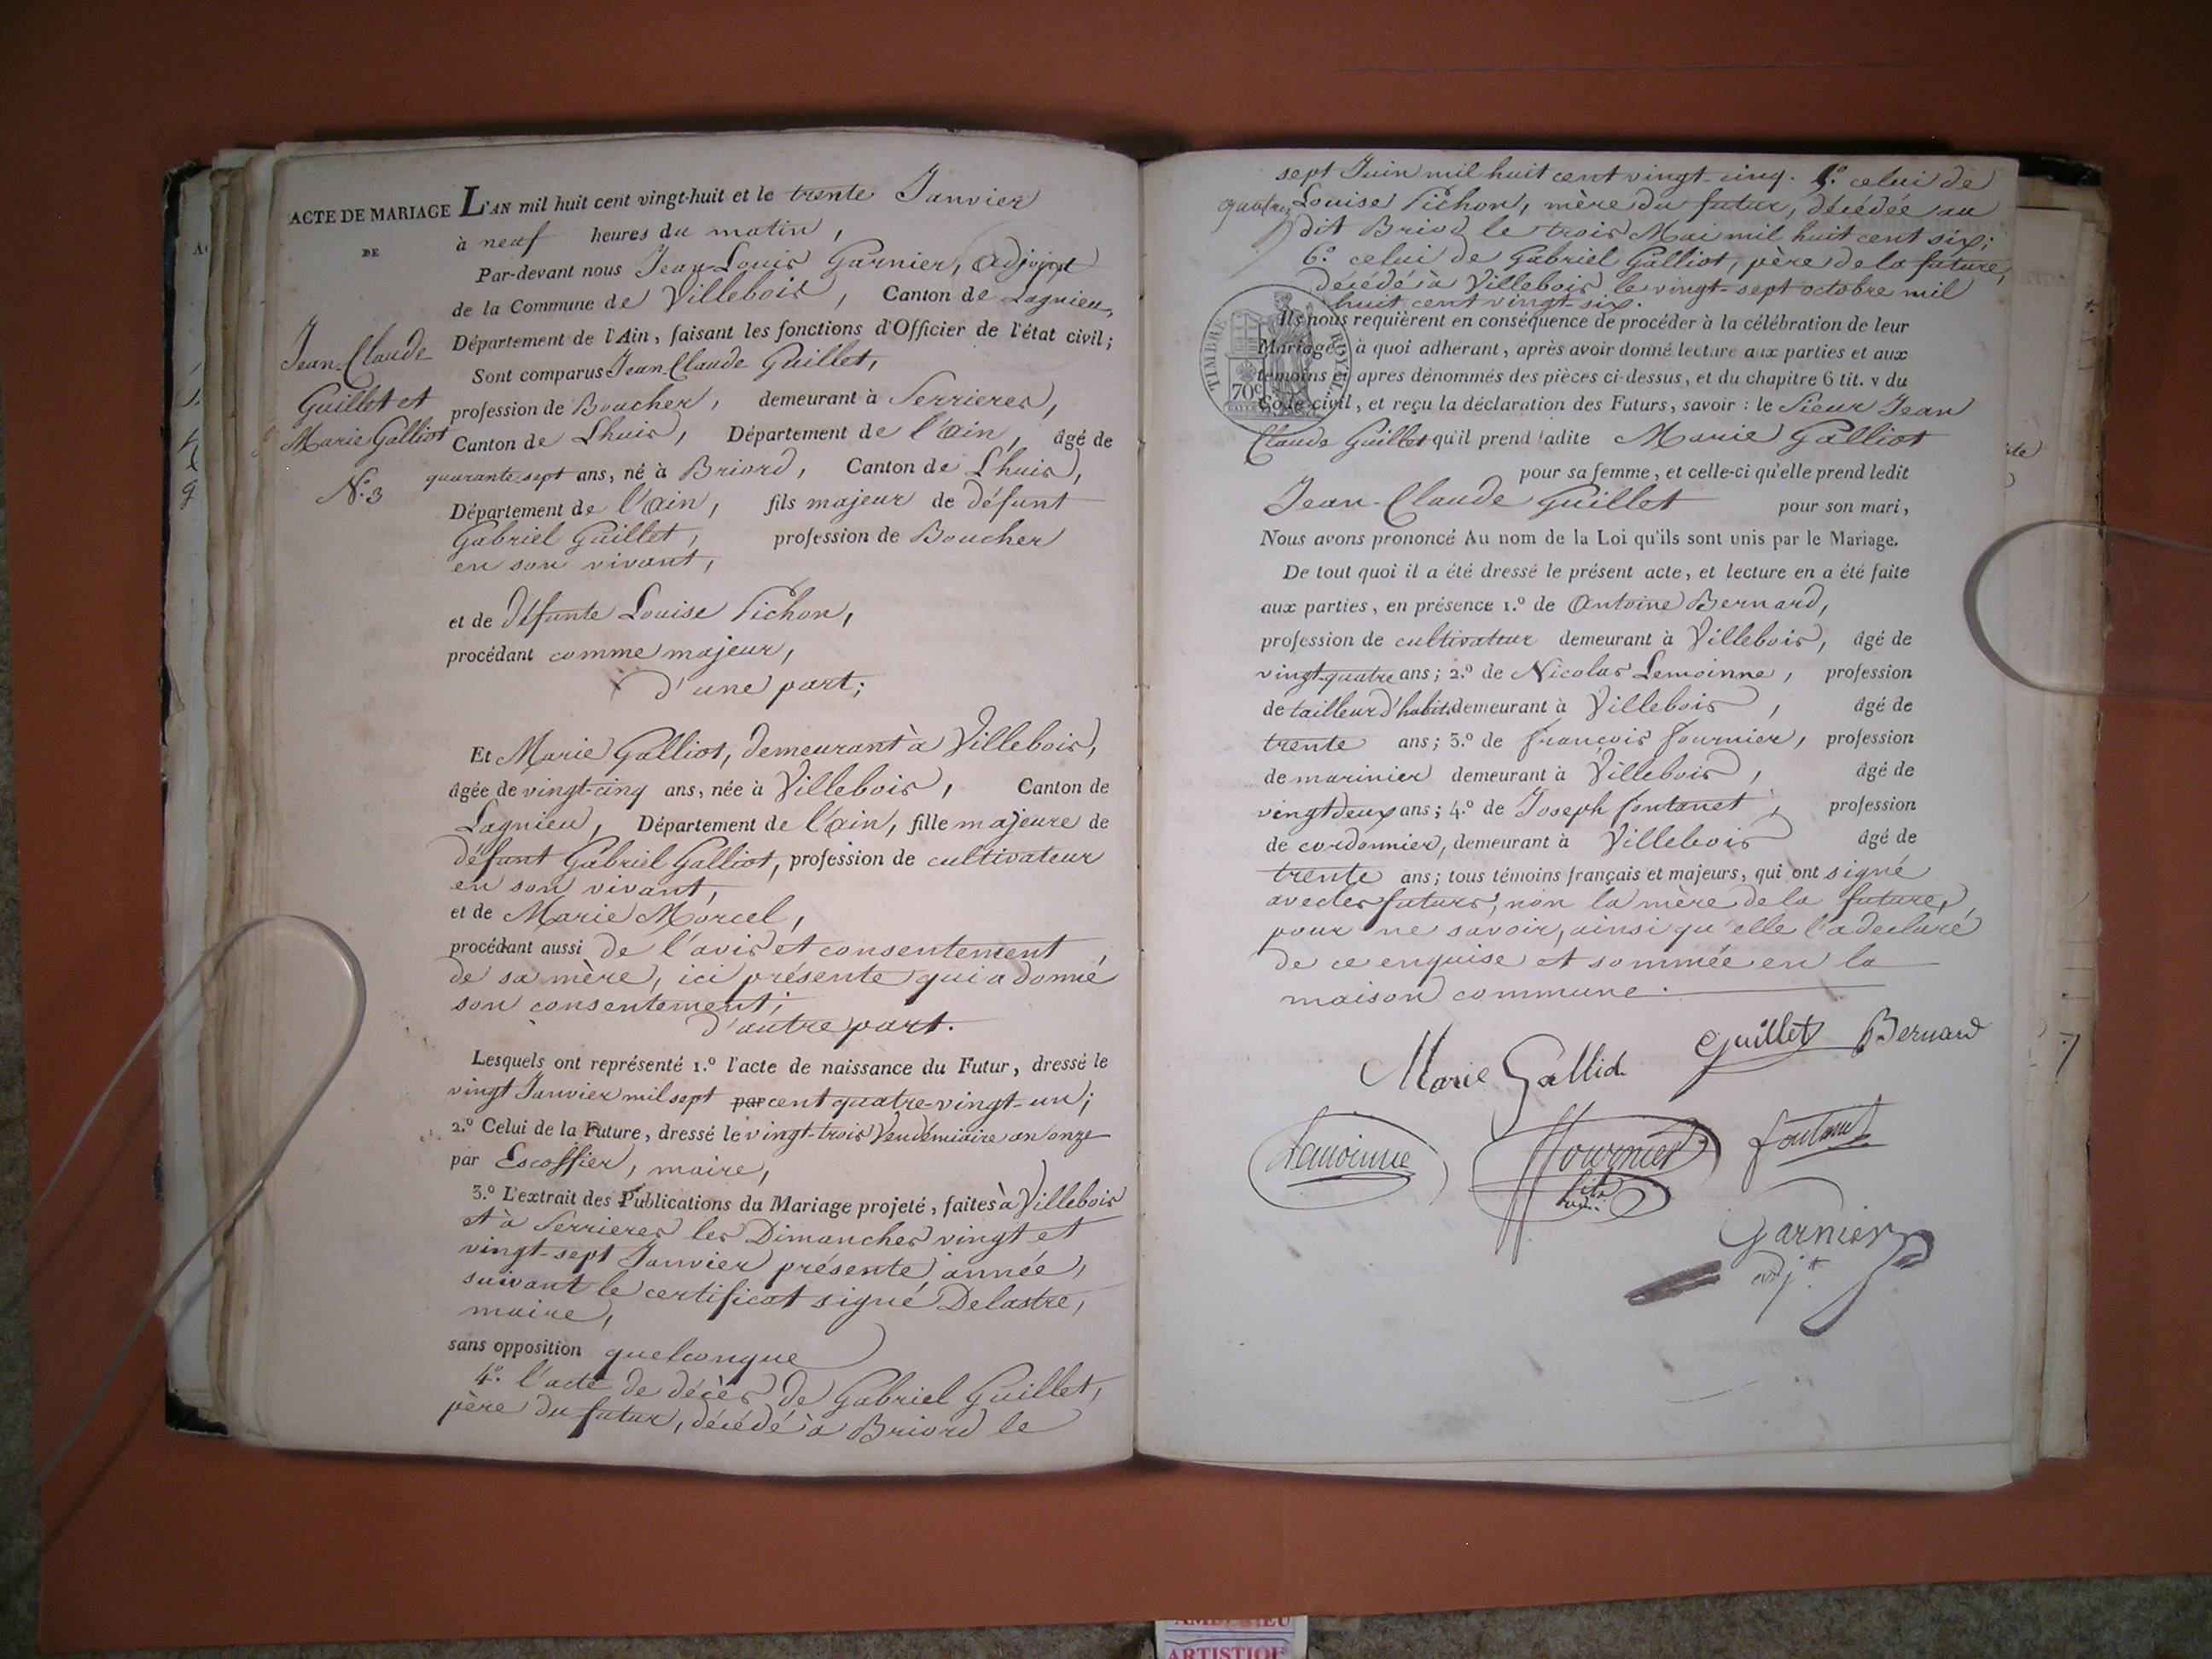 ACTE DE MARIAGE
DE
Jean-Claude
Guillet et
Marie Galliot
N.º 3
L'AN mil huit cent vingt-huit et le trente Janvier
à neuf heures du matin,
Par-devant nous Jean-Louis Garnier, adjoint
de la Commune de Villebois, Canton de Lagnieu,
Département de l'Ain, faisant les fonctions d'Officier de l'état civil;
Sont comparus Jean-Claude Guillet,
profession de Boucher, demeurant à Serrieres,
Canton de Lhuis, Département de l'ain, âgé de
quarante sept ans, né à Briord, Canton de Lhuis,
Département de l'ain, fils majeur de défunt
Gabriel Guillet, profession de Boucher
en son vivant,
et de défunte Louise Pichon,
procédant comme majeur,
d'une part;
Et Marie Galliot, demeurant à Villebois,
âgée de vingt-cinq ans, née à Villebois, Canton de
Lagnieu, Département de l'ain, fille majeure de
défunt Gabriel Galliot, profession de cultivateur
en son vivant,
et de Marie Morcel,
procédant aussi de l'avis et consentement
de sa mère, ici présente qui a donné
son consentement;
d'autre part.
Lesquels ont représenté 1.º l'acte de naissance du Futur, dressé le
vingt Janvier mil sept par cent quatre-vingt-un;
2.º Celui de la Future, dressé le vingt-trois Vendémiaire an onze
par Escoffier, maire,
3.º L'extrait des Publications du Mariage projeté, faites à Villebois
et à Serrieres les Dimanches vingt et
vingt-sept Janvier présente année,
suivant le certificat signé Delastre,
maire,
sans opposition quelconque
4.º l'acte de décès de Gabriel Guillet,
père du futur, décédé à Briord le
sept Juin mil huit cent vingt-cinq. 5.º celui de
Louise Pichon, mère du futur, décédée au
dit Briod le trois Mai mil huit cent six;
6.º celui de Gabriel Galliot, père de la future,
décédé à Villebois le vingt-sept octobre mil
huit cent vingt-six.
TIMBRE ROYAL
70c
Ils nous requièrent en conséquence de procéder à la célébration de leur
Mariage; à quoi adhérant, après avoir donné lecture aux parties et aux
témoins ci apres dénommés des pièces ci-dessus, et du chapitre 6 tit. v du
Code civil, et reçu la déclaration des Futurs, savoir : le Sieur Jean
Claude Guillet qu'il prend ladite Marie Galliot
pour sa femme, et celle-ci qu'elle prend ledit
Jean-Claude Guillet pour son mari,
Nous avons prononcé Au nom de la Loi qu'ils sont unis par le Mariage.
De tout quoi il a été dressé le présent acte, et lecture en a été faite
aux parties, en présence 1.º de Antoine Bernard,
profession de cultivateur demeurant à Villebois, âgé de
vingt-quatre ans; 2.º de Nicolas Lemoinne, profession
de tailleur d'habits demeurant à Villebois, âgé de
trente ans; 3.º de françois fournier, profession
de marinier demeurant à Villebois, âgé de
vingt deux ans; 4.º de Joseph fontanet, profession
de cordonnier, demeurant à Villebois âgé de
trente ans; tous témoins français et majeurs, qui ont signé
avec les futurs, non la mère de la future,
pour ne savoir, ainsi qu'elle l'a declaré
de ce enquise et sommée en la
maison commune.
Marie Galliot Guillet Bernard
Lemoinne fournier fils fontanet
Garnier
adj.t
ARTISTIQUE